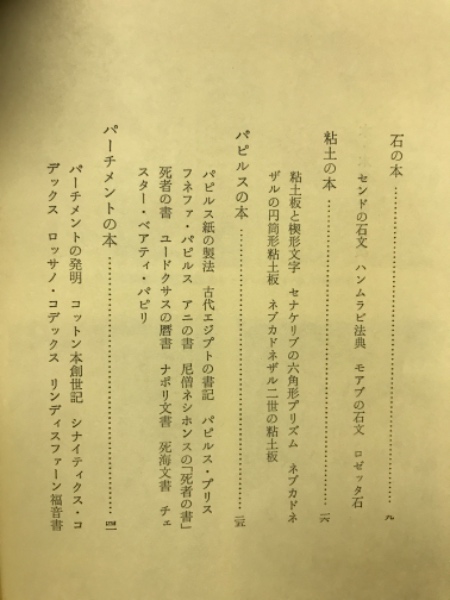 石の本……………………………九
センドの石文　ハンムラビ法典　モアブの石文　ロゼッタ石
粘土の本……………………………一六
粘土板と楔形文字　セナケリブの六角形プリズム　ネブカドネ
ザルの円筒形粘土板　ネブカドネザル二世の粘土板
パピルスの本……………………………二五
パピルス紙の製法　古代エジプトの書記　パピルス・プリス
フネファ・パピルス　アニの書　尼僧ネシホンスの「死者の書」
死者の書　ユードクサスの暦書　ナポリ文書　死海文書　チェ
スター・ベアティ・パピリ
パーチメントの本……………………………四一
パーチメントの発明　コットン本創世記　シナイティクス・コ
デックス　ロッサノ・コデックス　リンディスファーン福音書